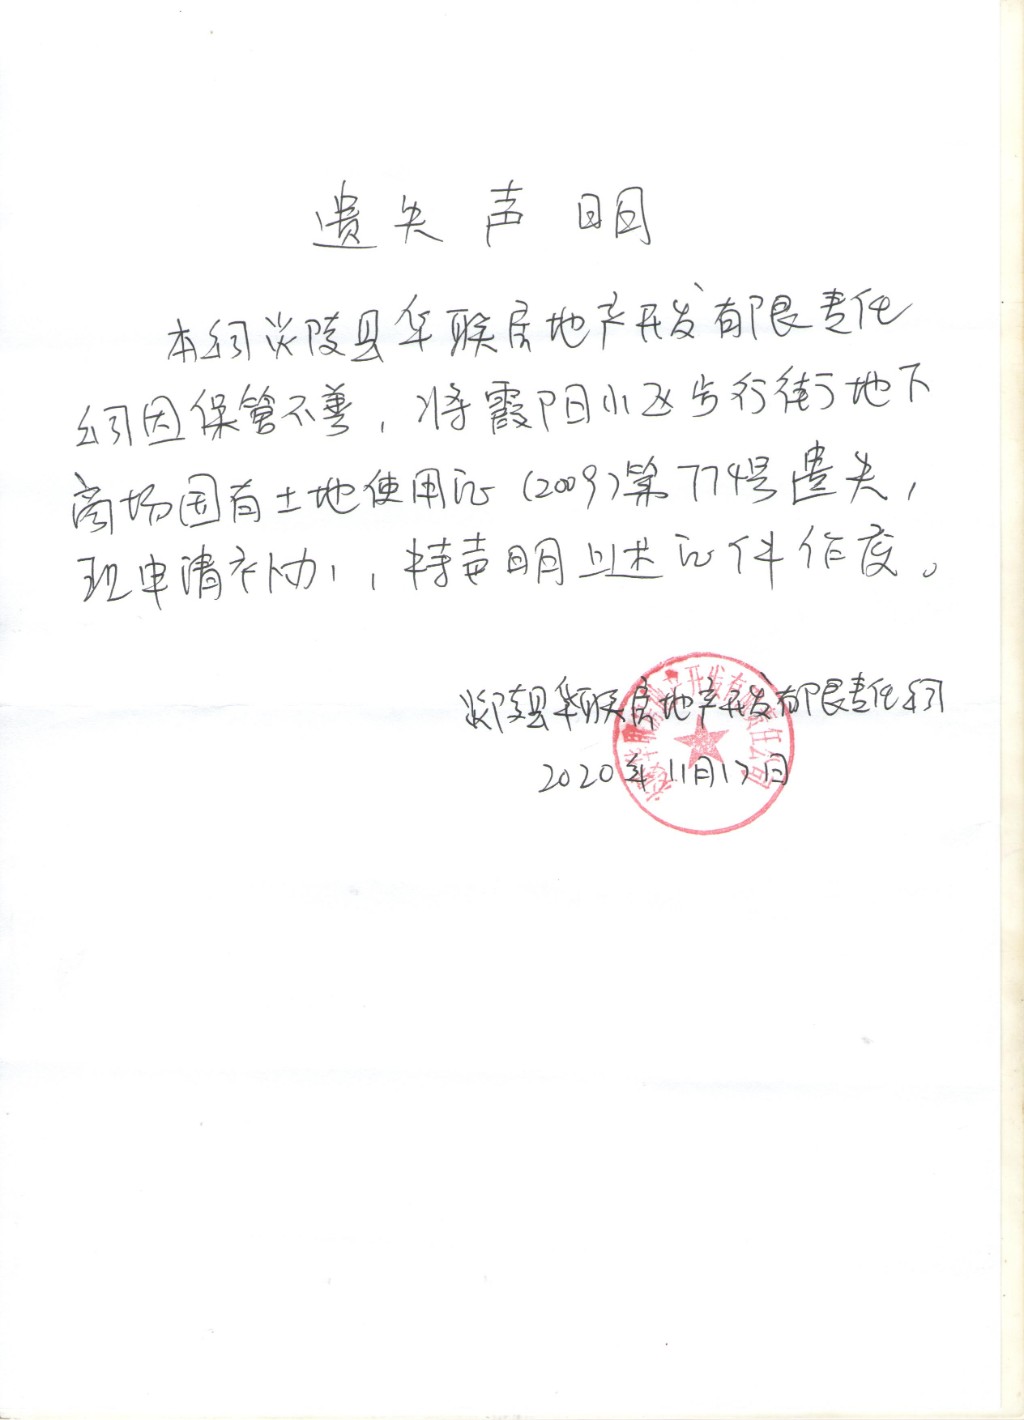 遗失声明
本公司炎陵县华联房地产开发有限责任
公司因保管不善，将霞阳小区步行街地下
商场国有土地使用证（2009）第774号遗失，
现申请补办，特声明上述证件作废。
炎陵县华联房地产开发有限责任公司
2020年11月17日